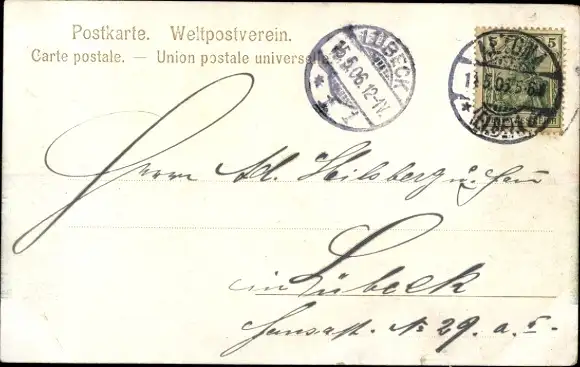 Postkarte. Weltpostverein.
Carte postale. — Union postale universelle.
LÜBECK
15.5.06.12-1V.
* 1
5
Herrn Ad. Hilsberg u. Frau
in Lübeck
Hansast. No 29. a. I.